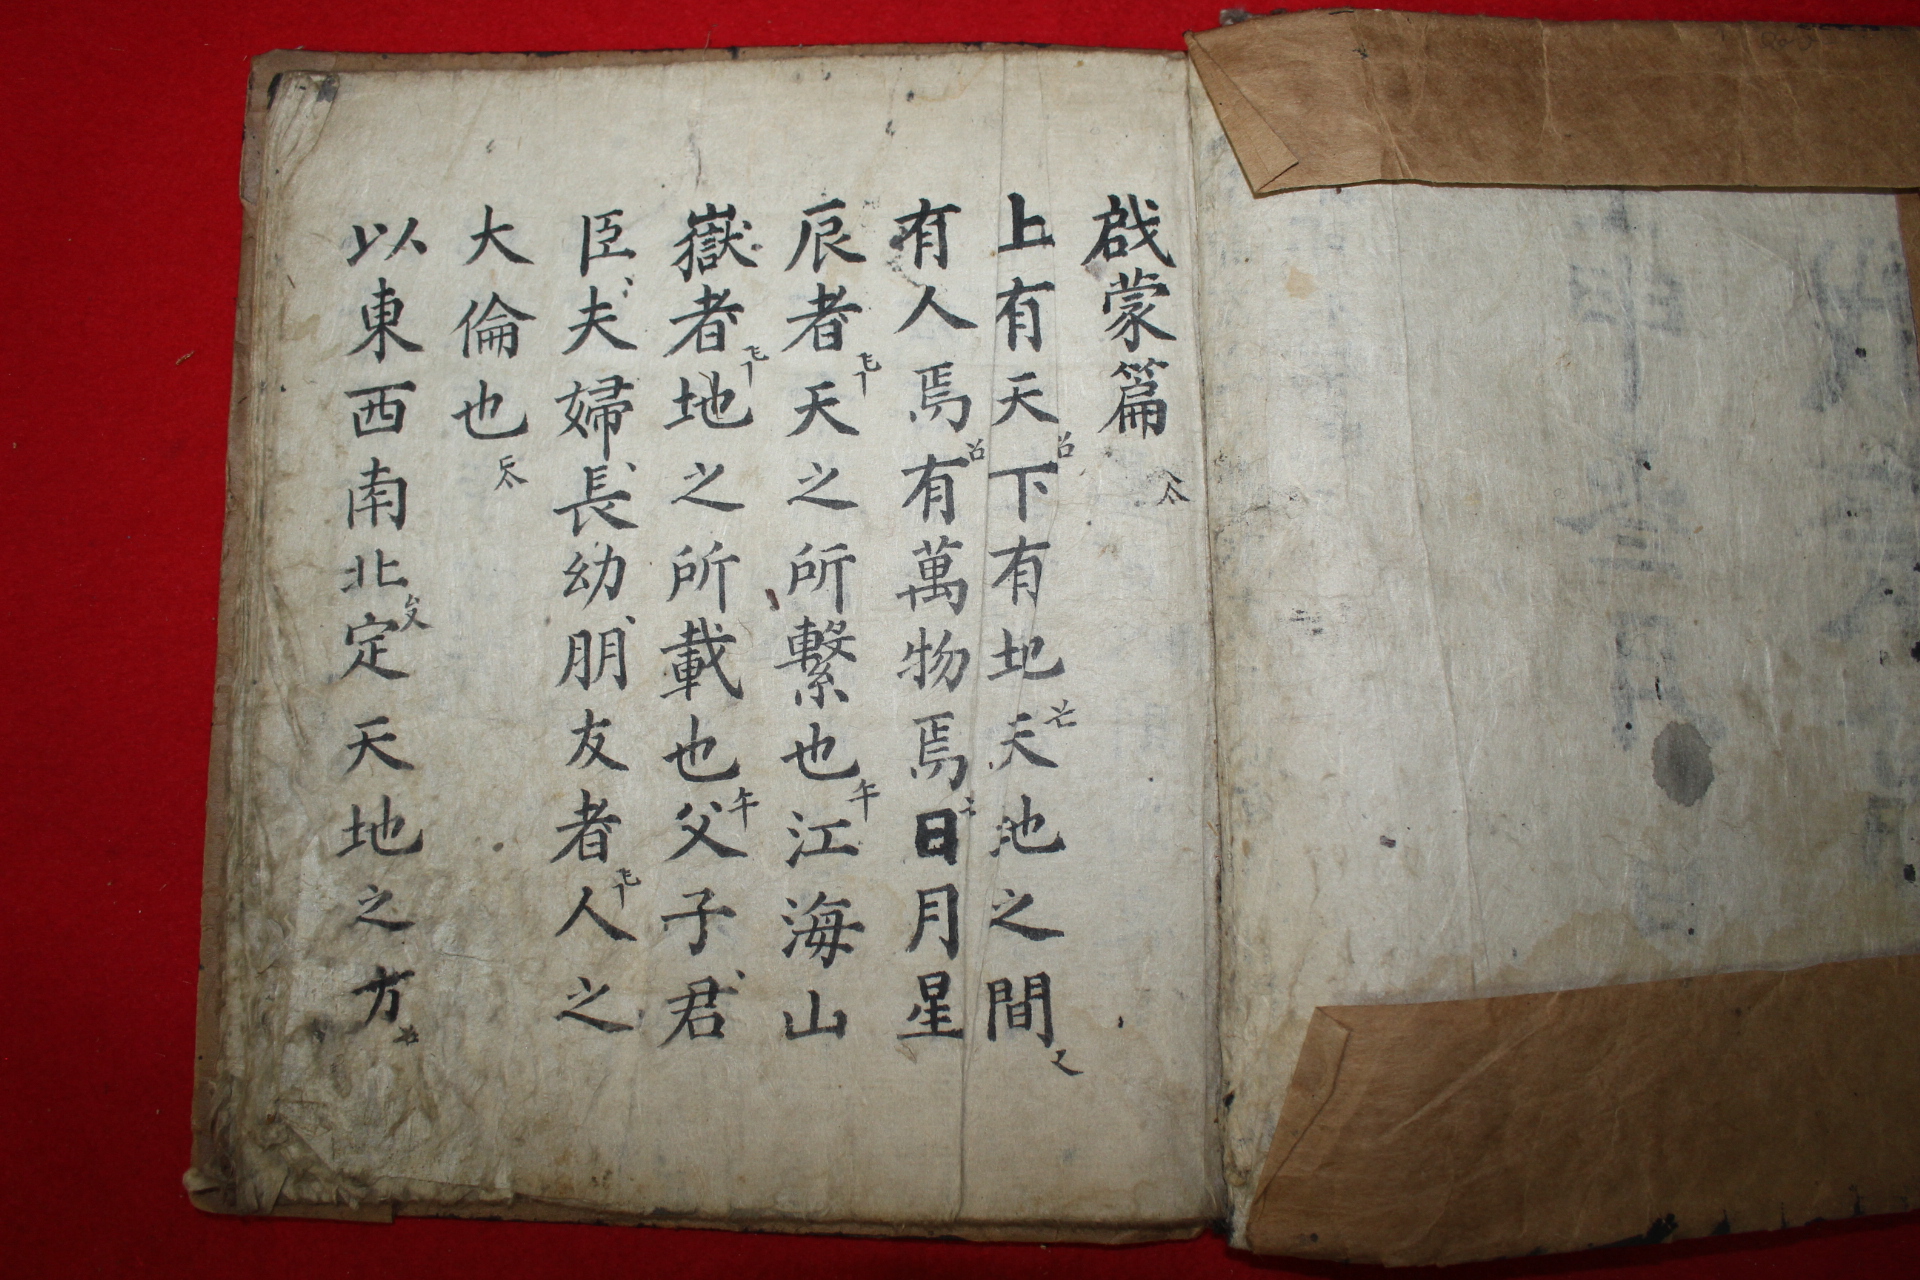 啟蒙篇
上有天下有地天地之間
有人焉有萬物焉日月星
辰者天之所繫也江海山
嶽者地之所載也父子君
臣夫婦長幼朋友者人之
大倫也
以東西南北定天地之方